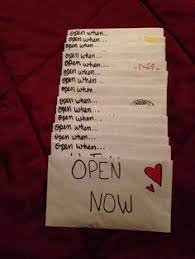 Open when...
Open when...
Open when...
Open when...
Open when...
Open when...
Open when...
Open when
Open when...
Open when...
Open when...
Open when...
Open when...
OPEN
NOW